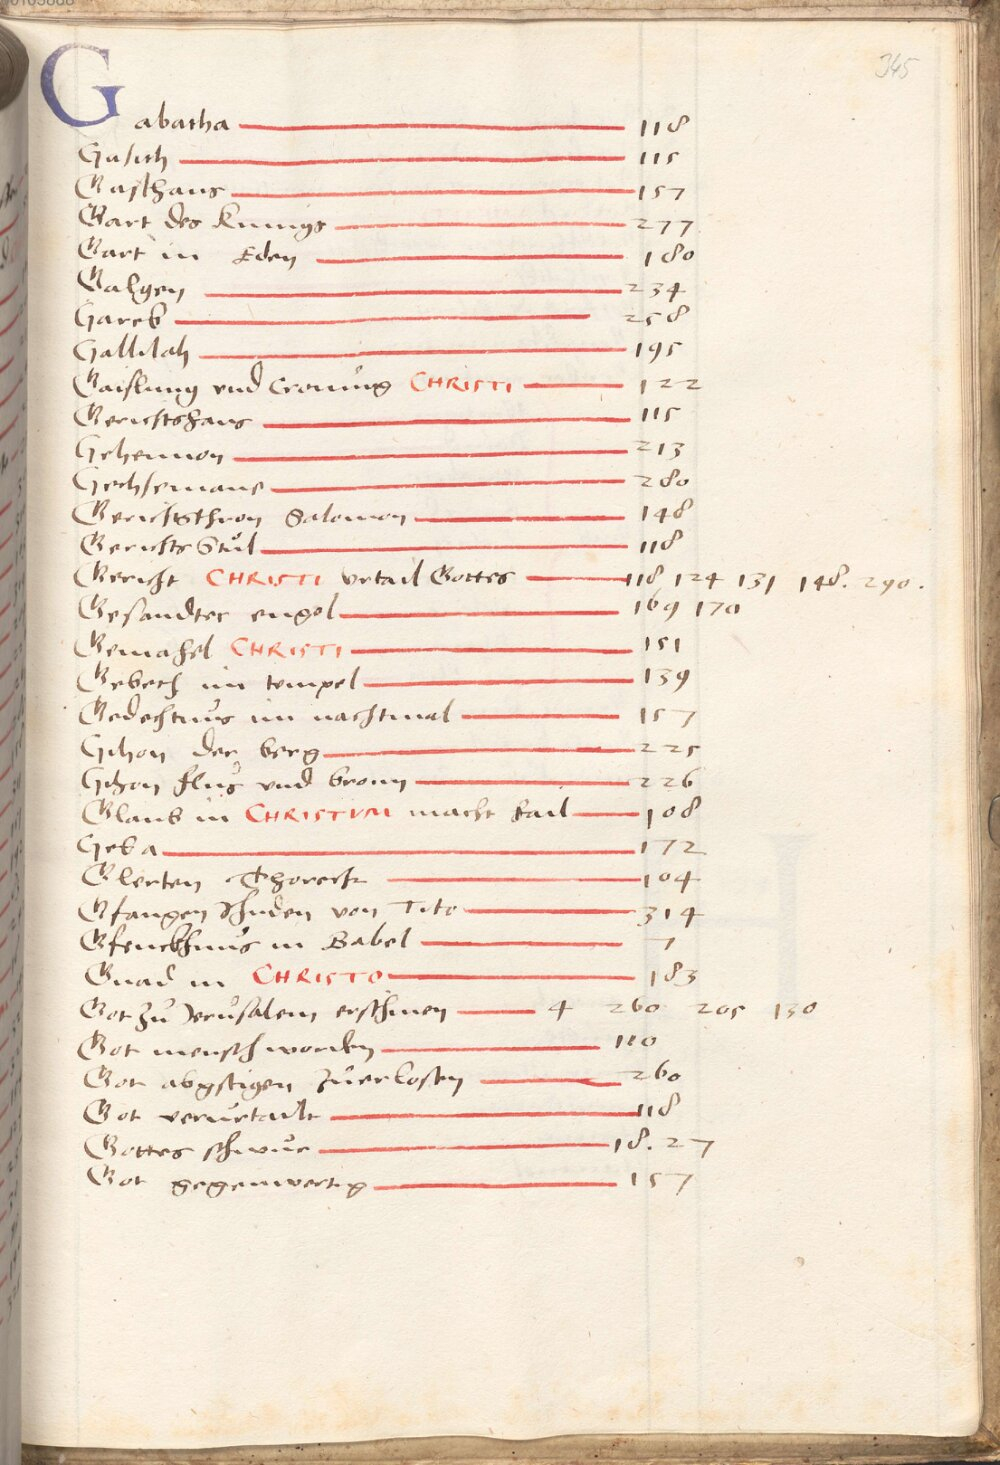 345
Gabatha 118
Gasith 115
Gasthaus 157
Gart des Kunigs 277
Gart in Eden 180
Galgen 234
Gareb 258
Gallilah 195
Gaislung vnd Cronung CHRISTI 122
Gerichtshaus 115
Gehennon 213
Gethsemane 280
Gerichtsthron Salomon 148
Gerichts Stůl 118
Gericht CHRISTI vrtail Gottes 118 124 131 148. 290.
Gesandter engel 169 170
Gemahel CHRISTI 151
Gebeth im tempel 139
Gedechtnus im nachtmal 157
Gihon der berg 225
Gihon flus vnd bronn 226
Glaub in CHRISTVM macht sail 108
Geba 172
Glerten Thoreck 104
Gfangen Juden von Tito 314
Gfencknus in Babel 7
Gnad in CHRISTO 183
Got zů Jerusalem erschinen 4 260 205 130
Got mensch worden 110
Got abgstigen zůerlosen 260
Got verurtailt 118
Gottes schwur 18. 27
Got gegenwertig 157